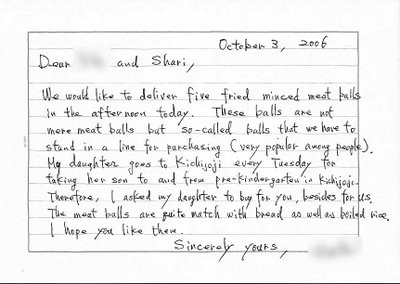 October 3, 2006
Dear and Shari,
We would like to deliver five fried minced meat balls
in the afternoon today. These balls are not
mere meat balls but so-called balls that we have to
stand in a line for purchasing (very popular among people).
My daughter goes to Kichijoji every Tuesday for
taking her son to and from pre-kindergarten in Kichijoji.
Therefore, I asked my daughter to buy for you, besides for us.
The meat balls are quite match with bread as well as boiled rice.
I hope you like them.
Sincerely yours,